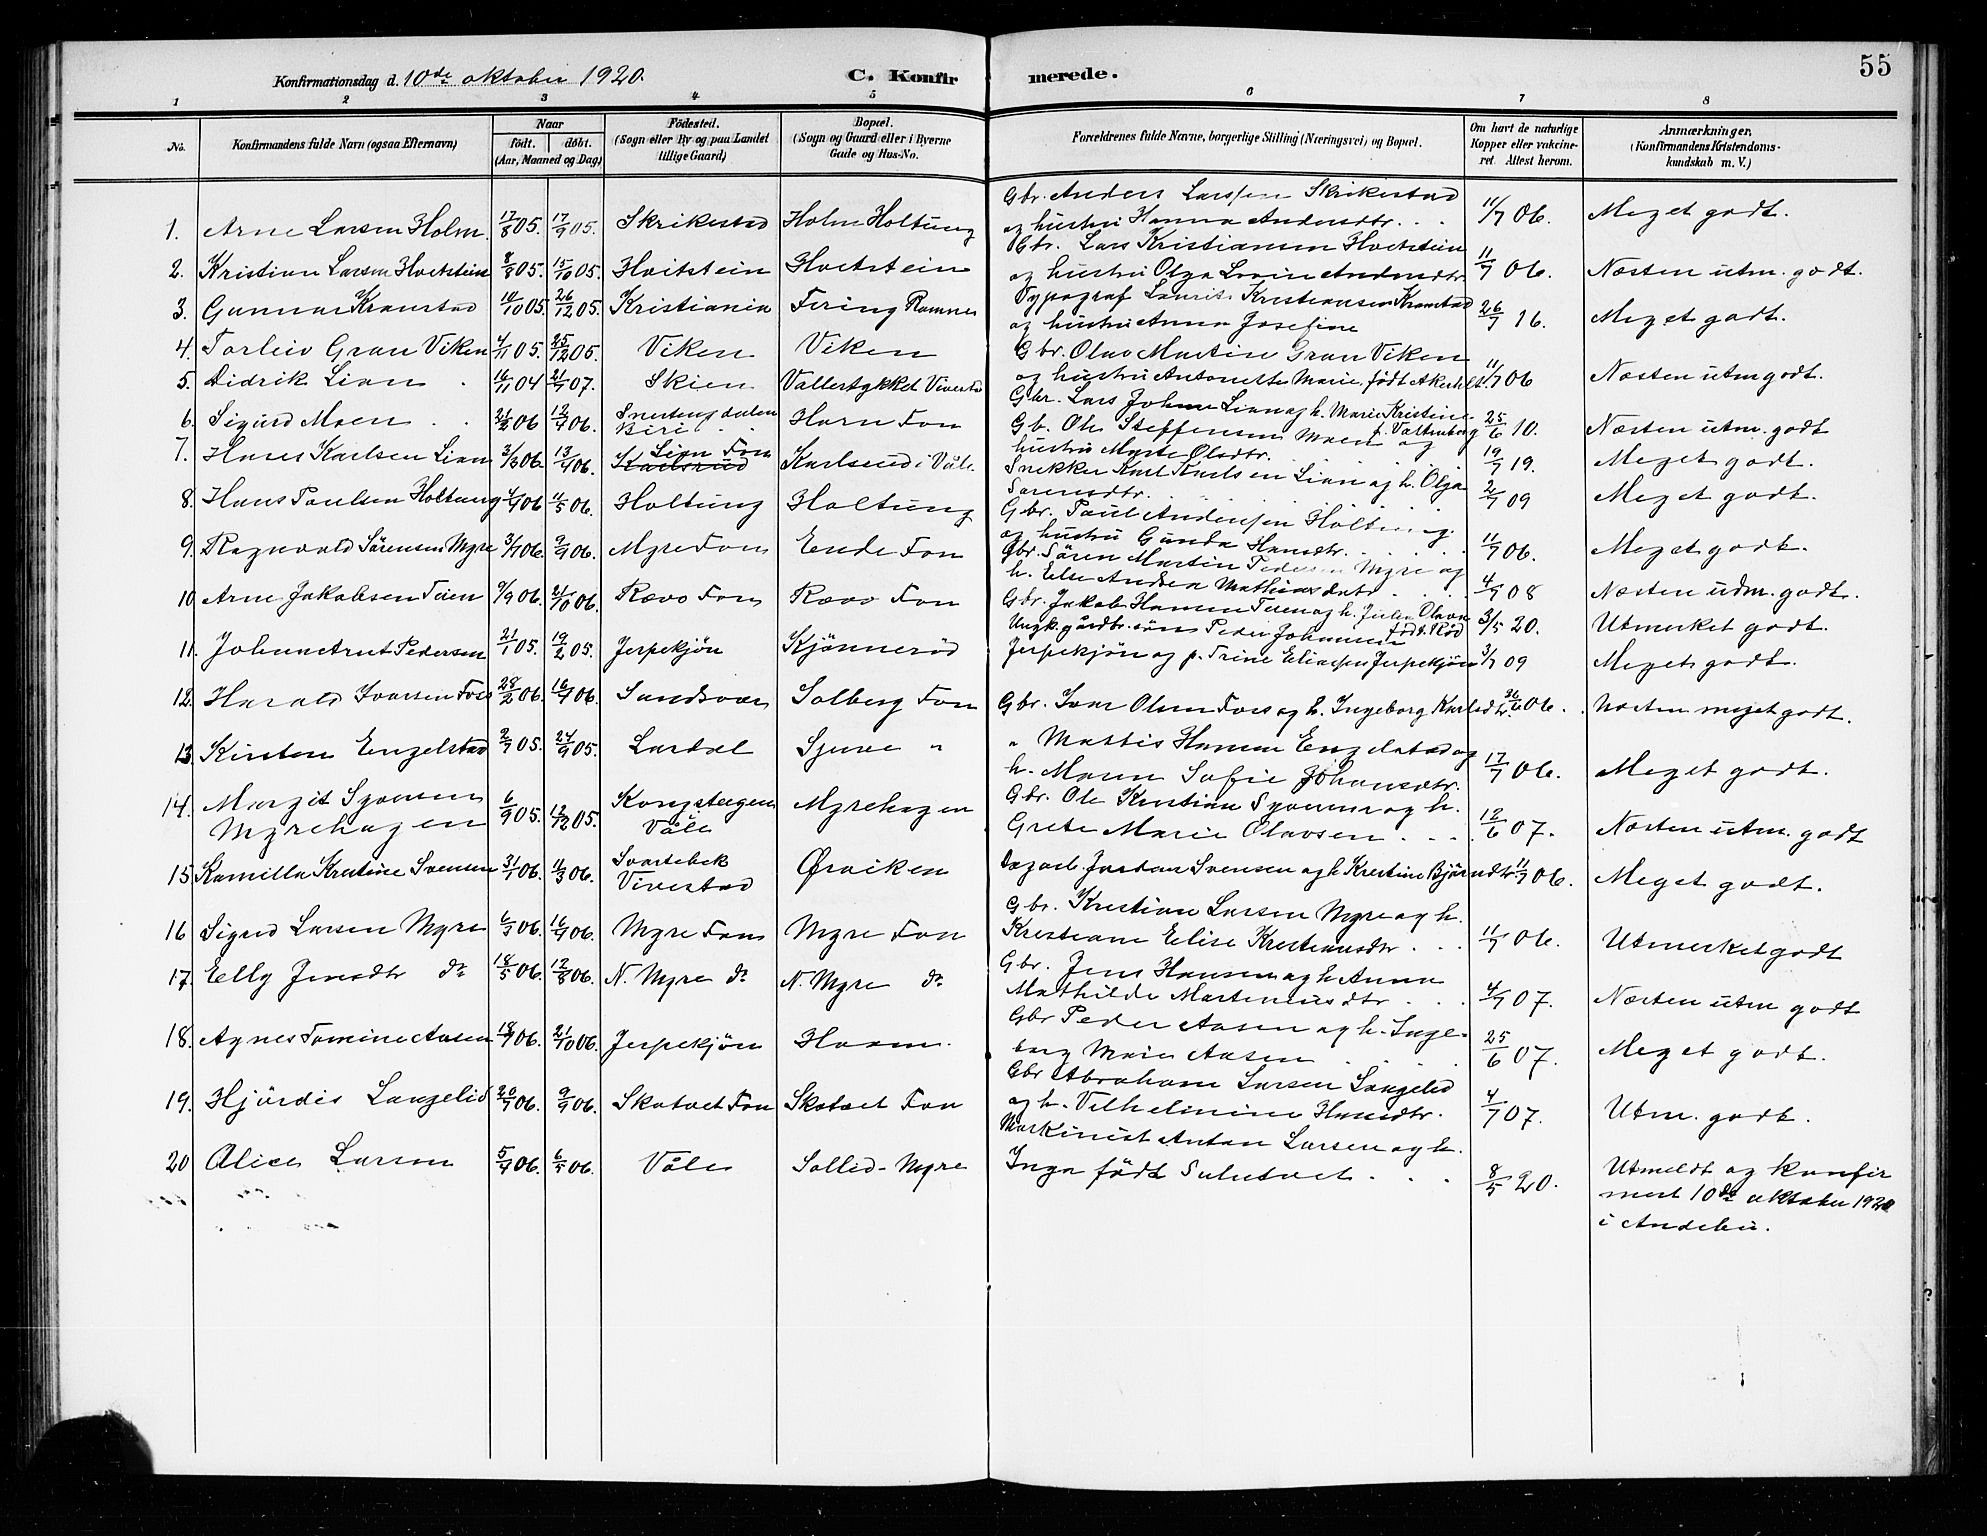 55
Konfirmationsdag d. 10de oktober 1920. C. Konfirmerede.
1 2 3 4 5 6 7 8
No. Konfirmandens fulde Navn (ogsaa Efternavn) Naar født. døbt. (Aar, Maaned og Dag) Födested. (Sogn eller By og paa Landet tillige Gaard) Bopæl. (Sogn og Gaard eller i Byerne Gade og Hus-No. Forældrenes fulde Navne, borgerlige Stilling (Næringsvei) og Bopæl. Om havt de naturlige Kopper eller vaccineret. Attest herom. Anmærkninger. (Konfirmandens Kristendomskundskab m. V.)
1. Arne Larsen Holm. 17/8 05. 17/9 05. Skrikestad Holm Holtung Gbr. Anders Larssen Skrikestad og hustru Hanna Andersdtr. 11/7 06. Meget godt.
2. Kristian Larsen Hvitstein 8/8 05. 15/10 05. Hvitstein Hvitstein Gbr. Lars Kristiansen Hvitstein og hustru Olga Andersdtr. 11/7 06. Næsten utm. godt.
3. Gunnar Kramstad 11/10 05 26/12 05. Kristiania Firing Ramnes Typograf Laurits Kristiansen Kramstad og hustru Anna Josefine 26/7 16. Meget godt.
4. Torleiv Gran Viken 4/11 05. 25/12 05. Viken Viken Gbr. Olav Martin Gran Viken og hustru Antonette Marie, født Akerholt. 11/7 06 Næsten utm godt.
5. Didrik Lian 16/11 04 21/7 07. Skien Vallestykket Vivestad Gbr. Lars Johan Lian og h. Marie Kristine f. 25/6 10. Næsten utm. godt
6. Sigurd Moen 21/2 06 12/4 06. Snertingdalen Biri Horn Fon Gb. Ole Steffensen Moen og hustru Marte Olsdtr. 19/7 19. Meget godt.
7. Hans Karlsen Lian 3/3 06. 13/4 06. Lian Fon Karlsrud Karlsrud i Våle Snekker Karl Karlsen Lian og h. Olga Sørensdtr. 2/7 09 Meget godt.
8. Hans Paulsen Holtung 4/4 06 11/5 06. Holtung Holtung Gbr. Paul Anderssen Holtung og hustru Gunda Hansdtr. 11/7 06. Meget godt.
9. Ragnvald Sørensen Myre 3/7 06. 9/9 06. Myre Fon Ende Fon Gbr. Søren Martin Pedersen Myre og h. Else Andrea Mathiasdatr 4/7 08 Næsten udm. godt.
10 Arne Jakobsen Teien 9/9 06. 21/10 06. Rævo Fon Rævo Fon Gbr. Jakob Hansen Teien og h. Julie Olava født Rød 3/5 20. Utmerket godt.
11. Johan Arnt Pedersen 21/1 05. 19/2 05. Jerpekjøn Kjønnerød Ungk. gårdbr. søn Peder Johannesen Jerpekjøn og p. Trine Eliassen Jerpekjøn 3/7 09 Meget godt.
12. Harald Ivarsen Foss 28/2 06. 16/4 06. Sandsvær Solberg Fon Gbr. Ivar Olsen Foss og h. Ingeborg Karlsdtr. 26/6 06. Næsten meget godt.
13. Kirsten Engelstad 2/7 05. 24/9 05. Lardal Sjuve " " Mattis Hansen Engelstad og h. Maren Sofie Johansdtr. 17/7 06. Meget godt.
14. Margit Syversen Myrehagen 6/9 05. 12/12 05. Kongsteigen Våle Myrehagen Gbr. Ole Kristian Syversen og h. Grete Marie Olavsen 12/6 07. Næsten utm. godt
15 Kamilla Kristine Svensen 31/1 06. 11/3 06. Svartebek Vivestad Ørviken Dagarb. Jordan Svensen og h Kristine Bjørndtr. 11/7 06. Meget godt.
16 Sigrid Larsen Myre 6/3 06. 16/4 06. Myre Fon Myre Fon Gbr. Kristian Larsen Myre og h. Kristiane Elise Kristiansdtr 11/7 06. Utmerket godt
17. Elly Jensdtr do 18/5 06. 12/8 06. N. Myre do N. Myre do Gbr. Jens Hansen og h Anna Mathilde Martiniusdtr 4/7 07. Næsten utm godt
18. Agnes Tomine Aasen 18/4 06. 21/10 06. Jerpekjøn Horn. Gbr Peder Aasen og h. Ingeborg Marie Aasen 25/6 07. Meget godt.
19. Hjördis Langelid 20/7 06. 9/9 06. Skotvet Fon Skotvet Fon Gbr Abraham Larsen Langelid og h. Vilhelmine Hansdtr. 4/7 07. Utm. godt.
20 Alice Larsen 5/4 06. 6/5 06. Våle Sollid-Myre Maskinist Anton Larsen og h. Inga født Sulutvet 8/5 20. Utmeldt og konfirmert 10de oktober 1920 i Andebu.